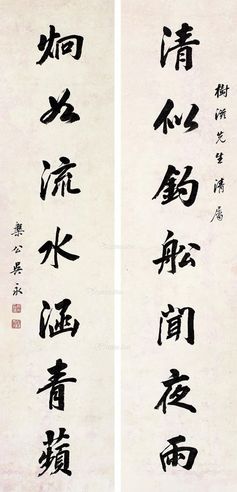 樹滋先生清屬
清似釣舩聞夜雨
炯如流水涵青蘋
槃公吳永